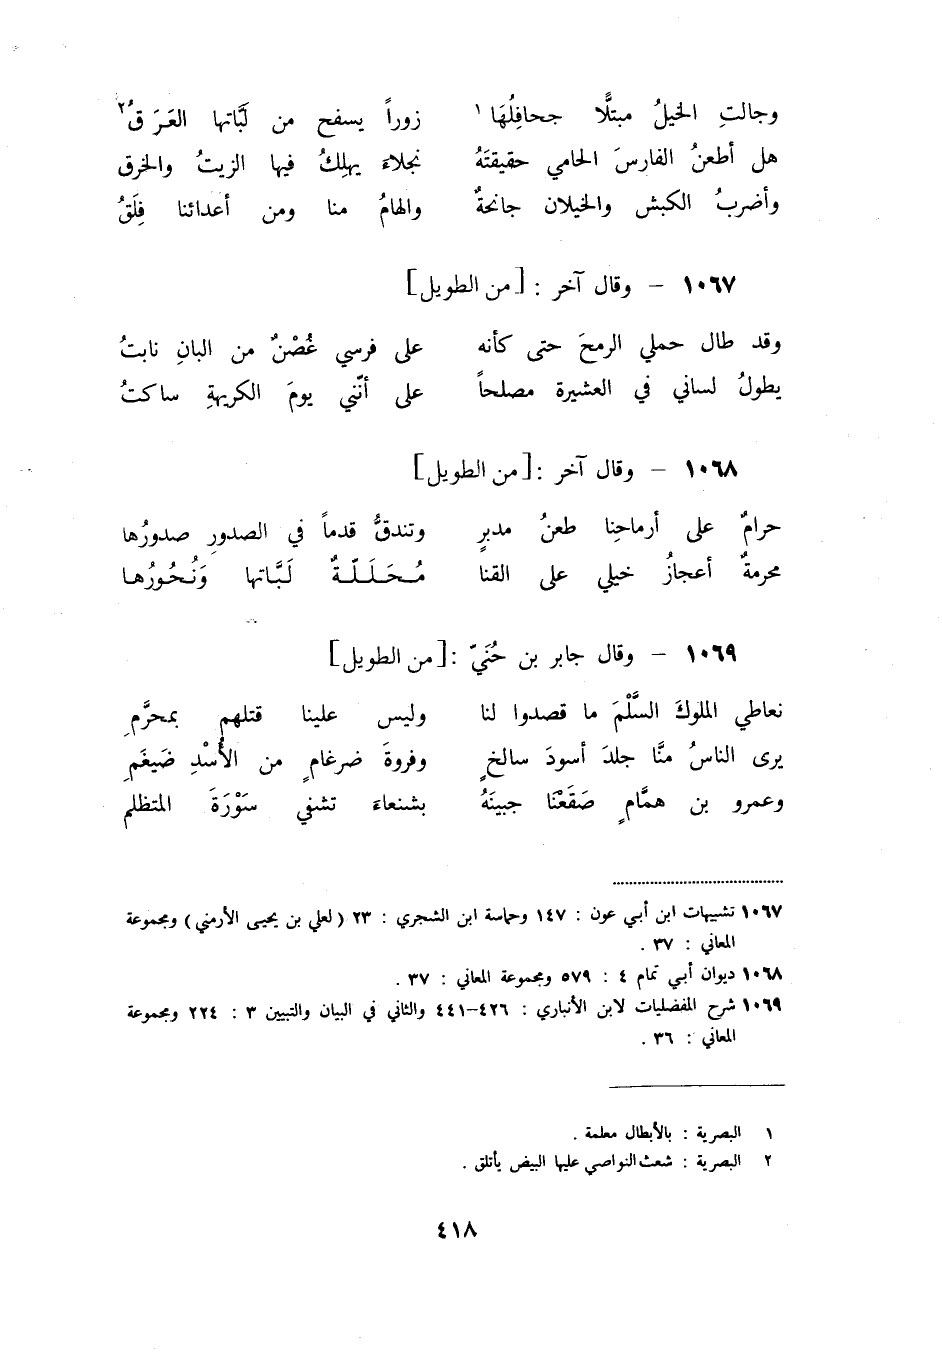 وجالتِ الخيلُ مبتلًّا جحافِلُهَا ١ زوراً يسفح من لَبَّاتها العَرَقُ ٢
هل أطعنُ الفارسَ الحامي حقيقتَهُ نجلاءَ يهلِكُ فيها الزيتُ والخرق
وأضربُ الكبش والخيلان جانحةٌ والهامُ منا ومن أعدائنا فِلَقُ
١٠٦٧ – وقال آخر : [من الطويل]
وقد طال حملي الرمحَ حتى كأنه على فرسي غُصْنٌ من البانِ نابتُ
يطولُ لساني في العشيرة مصلحاً على أنّني يومَ الكريهةِ ساكتُ
١٠٦٨ – وقال آخر : [من الطويل]
حرامٌ على أرماحِنا طعنُ مدبرٍ وتندقُّ قدماً في الصدورِ صدورُها
محرمةٌ أعجازُ خيلي على القنا مُحَلَّلَةٌ لَبَّاتها وَنُحُورُها
١٠٦٩ – وقال جابر بن حُنَيّ : [من الطويل]
نعاطي الملوكَ السَّلْمَ ما قصدوا لنا وليس علينا قتلهم بمحرَّمِ
يرى الناسُ منَّا جلدَ أسودَ سالخٍ وفروةَ ضرغامٍ من الأُسْدِ ضَيغَمِ
وعمرو بن همَّامٍ صَقَعْنَا جبينَهُ بشنعاءَ تشفي سَوْرَةَ المتظلم
١٠٦٧ تشبيهات ابن أبي عون : ١٤٧ وحماسة ابن الشجري : ٢٣ (لعلي بن يحيى الأرمني) ومجموعة
المعاني : ٣٧ .
١٠٦٨ ديوان أبي تمام ٤ : ٥٧٩ ومجموعة المعاني : ٣٧ .
١٠٦٩ شرح المفضليات لابن الأنباري : ٤٢٦–٤٤١ والثاني في البيان والتبيين ٣ : ٢٢٤ ومجموعة
المعاني : ٣٦ .
١ البصرية : بالأبطال معلمة .
٢ البصرية : شعث النواصي عليها البيض يأتلق .
٤١٨